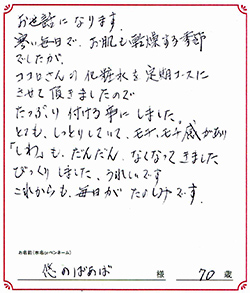 お世話になります。
寒い毎日で、お肌も乾燥する季節
でしたが、
ココロさんの化粧水を定期コースに
させて頂きましたので
たっぷり付ける事にしました。
とても、しっとりしていて、モチモチ感があり
「しわ」も、だんだん、なくなってきました
びっくりしました、うれしいです
これからも、毎日がたのしみです。
お名前(本名orペンネーム)
悠のばあば 様 70 歳